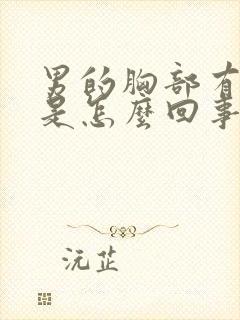 男的胸部有
是怎麼回事
沅芷